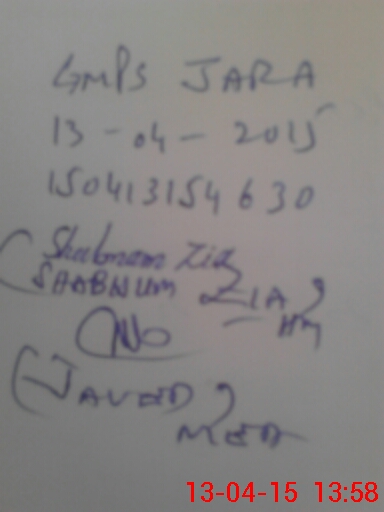 GMPS JARA
13-04-2015
150413154630
Shabnam Zia
(SHABNUM ZIA)
HM
(JAVED)
MEA
13-04-15 13:58